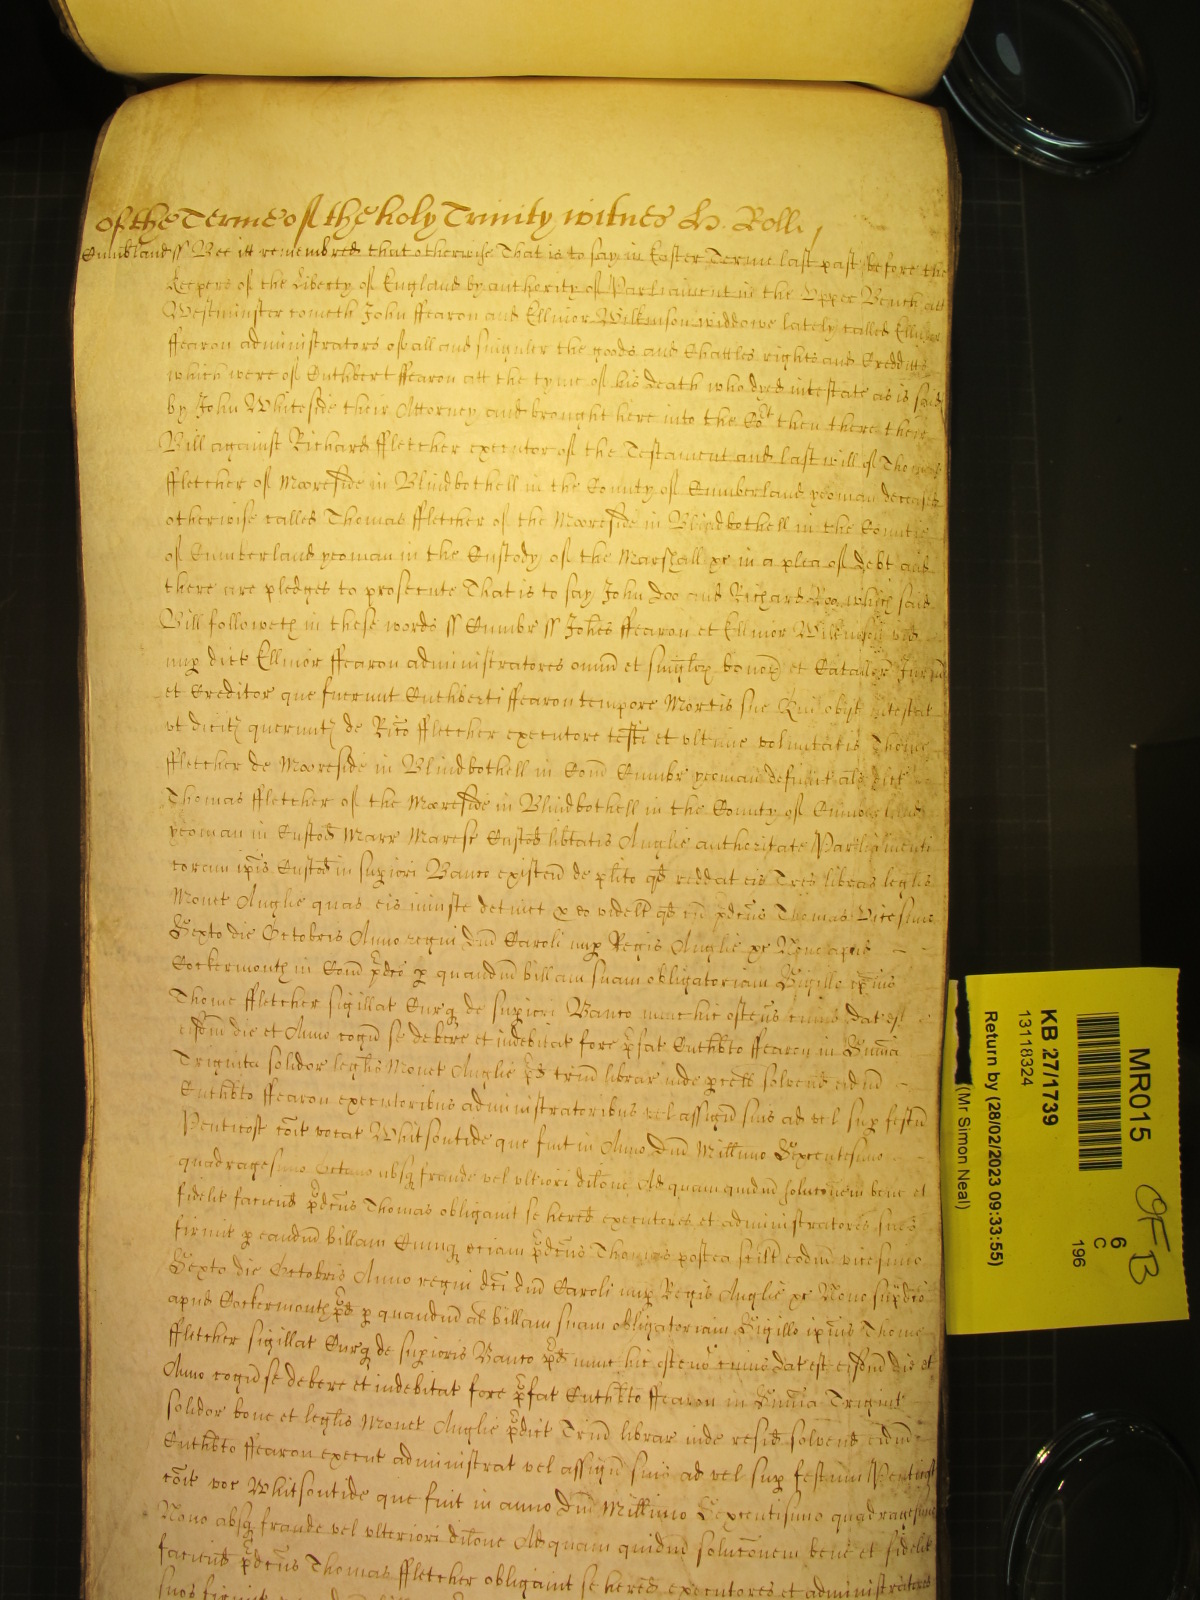 Of the Terme of the holy Trinity witnes H. Rolle
Cumbland ss Bee itt remembred that otherwise That is to say in Easter Terme last past before the
Keepers of the Liberty of England by authority of Parliament in the Upper Bench att
Westminster cometh John ffearon and Ellinor Wilkinson widdowe lately called Ellinor
ffearon administrators of all and singuler the goods and Chattles rights and Creditts
which were of Cuthbert ffearon att the tyme of his death who dyed intestate as is said
by John Whiteside their Attorney and brought here into the Cort then there their
Bill against Richard ffletcher executor of the Testament and last will of Thomas
ffletcher of Mooreside in Blindbothell in the County of Cumberland yeoman deceased
otherwise called Thomas ffletcher of the Mooreside in Blindbothell in the Countie
of Cumberland yeoman in the Custody of the Marshall &c in a plea of debt and
there are pledges to prosecute That is to say John Doo and Richard Roo which said
Bill followeth in these words ss Cumbr ss Johes ffearon et Ellinor Wilkinson vid
nup dict Ellinor ffearon administratores omiu et singlor bonor et Catallor Jurium
et Creditor que fuerunt Cuthberti ffearon tempore Mortis sue Qui obijt intestat
ut dicitr queruntr de Rico ffletcher executore testi et ultime voluntatis Thome
ffletcher de Mooreside in Blindbothell in Com Cumbr yeoman defunct als dict
Thomas ffletcher of the Mooreside in Blindbothell in the County of Cumberland
yeoman in Custod Marr Maresc Custod libtatis Anglie authoritate Parliamenti
coram ipis Custod in supiori Banco existen de plito qd reddat eis Tres libras leglis
Monet Anglie quas eis iniuste detinet p eo videlt qd cu pdcus Thomas Vicesimo
Sexto die Octobris Anno regni Dni Caroli nup Regis Anglie &c Nono apud
Cockermouth in Com pdco p quandm billam suam obligatoriam Sigillo ipius
Thome ffletcher sigillat Curq de supiori Banco nunc hic ostens cuius dat est
eisdm die et Anno cogn se debere et indebitat fore pfat Cuthbto ffearon in Suma
Triginta solidor leglis Monet Anglie pd trim librar inde pcell solvend eidm
Cuthbto ffearon executoribus administratoribus vel assign suis ad vel sup festu
Penticost coit vocat Whitsontide que fuit in Anno Dni Millimo Sexcentesimo
quadragesimo Octavo absq fraude vel ulteriori dilone Ad quam quidm solutionem bene et
fidelit faciend pdcus Thomas obligavit se hered executores et administratores suos
firmit p eandm billam Cumq eciam pdcus Thomas postea scilt eodm vicesimo
Sexto die Octobris Anno regni dci dni Caroli nup Regis Anglie &c Nono supdco
apud Cockermouth pd p quandm al billam suam obligatoriam Sigillo ipius Thome
ffletcher sigillat Curq de supioris Banco pd nunc hic ostens cuius dat est eisdm die et
Anno cogn se debere et indebitat fore pfat Cuthbto ffearon in Suma Trigint
solidor bone et leglis Monet Anglie pdict Trim librar inde resid solvend eidm
Cuthbto ffearon execut administrat vel assign suis ad vel sup festum Penticost
coit voc Whitsontide que fuit in anno Dni Millimo Sexcentesimo quadragesimo
Nono absq fraude vel ulteriori dilone Ad quam quidm solutionem bene et fidelit
faciend pdcus Thomas ffletcher obligavit se hered executores et administratores
suos firmit
MR015
6
C
196
OFB
KB 27/1739
13118324
Return by (28/02/2023 09:33:55)
(Mr Simon Neal)